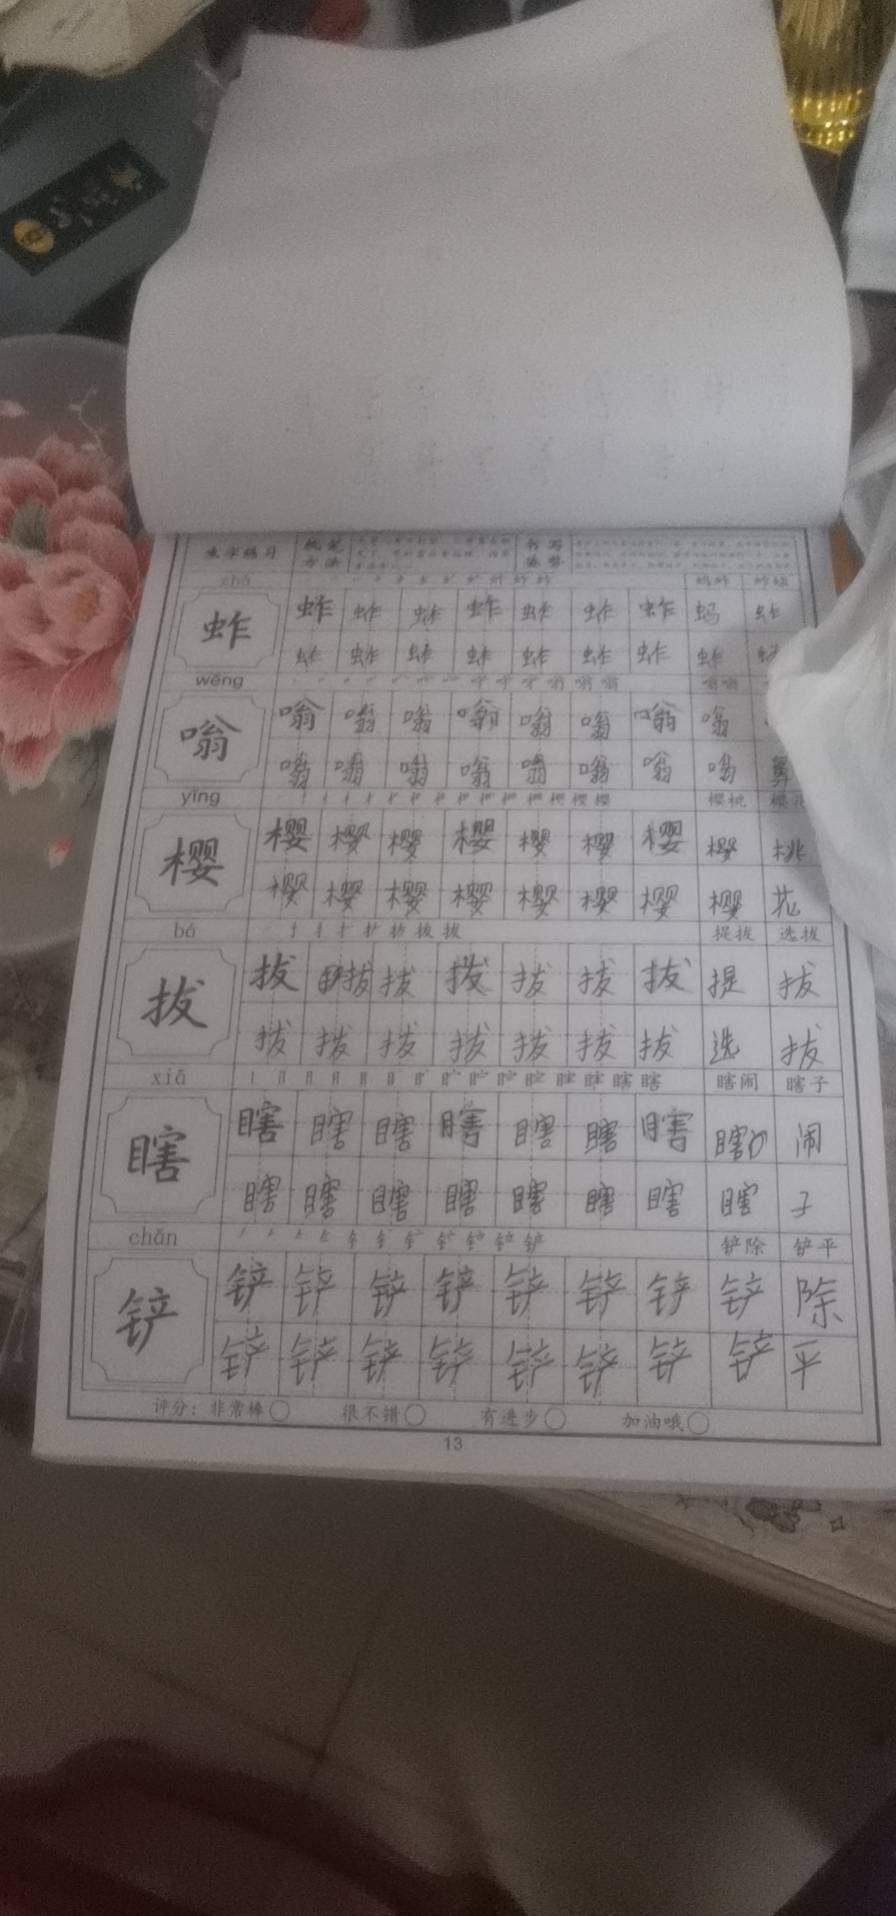 生字练习 执笔方法 书写姿势
蚱 蚱 蚱 蚱 蚱 蚱 蚱 蚱 蚂 蚱
蚱 蚱 蚱 蚱 蚱 蚱 蚱 蚱
wēng 嗡嗡
嗡 嗡 嗡 嗡 嗡 嗡 嗡 嗡 嗡
嗡 嗡 嗡 嗡 嗡 嗡 嗡 嗡
yīng 樱桃 樱花
樱 樱 樱 樱 樱 樱 樱 樱 樱 桃
樱 樱 樱 樱 樱 樱 樱 樱 花
bá 提拔 选拔
拔 拔 拔 拔 拔 拔 拔 拔 提 拔
拔 拔 拔 拔 拔 拔 拔 选 拔
xiā 瞎闹 瞎子
瞎 瞎 瞎 瞎 瞎 瞎 瞎 瞎 瞎 闹
瞎 瞎 瞎 瞎 瞎 瞎 瞎 瞎 子
chǎn 铲除 铲平
铲 铲 铲 铲 铲 铲 铲 铲 铲 除
铲 铲 铲 铲 铲 铲 铲 铲 平
评分：非常棒 很不错 有进步 加油哦
13